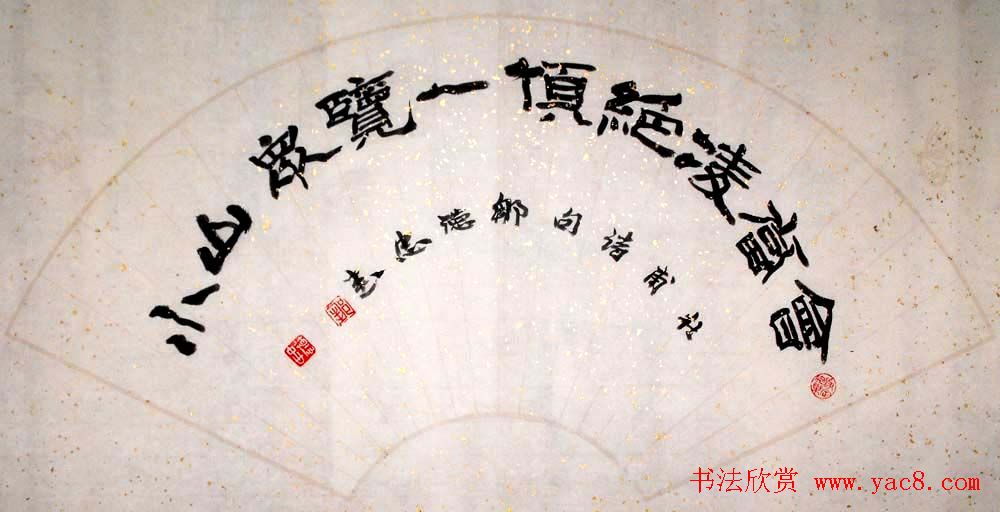 會當凌絕頂一覽眾山小
杜甫詩句鄒德忠書
书法欣赏 www.yac8.com